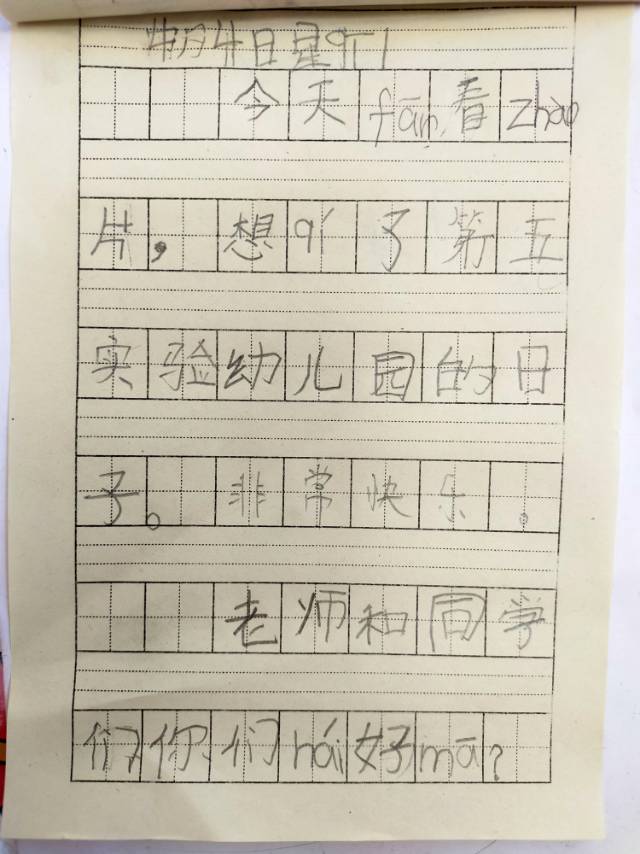 4月4日星qī1
今天fān看zhào
片，想qǐ了第五
实验幼儿园的日
子。非常快乐。
老师和同学
们你们hái好mā?